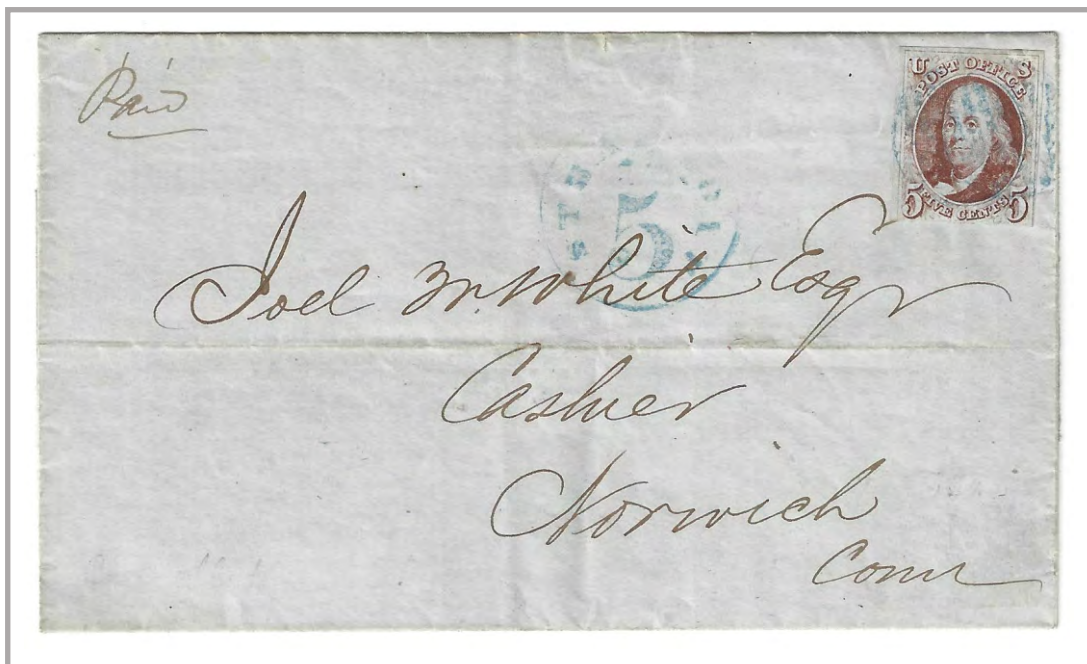 Paid
U S
POST OFFICE
FIVE CENTS
5 5
5
Joel W. White Esqr
Cashier
Norwich
Conn